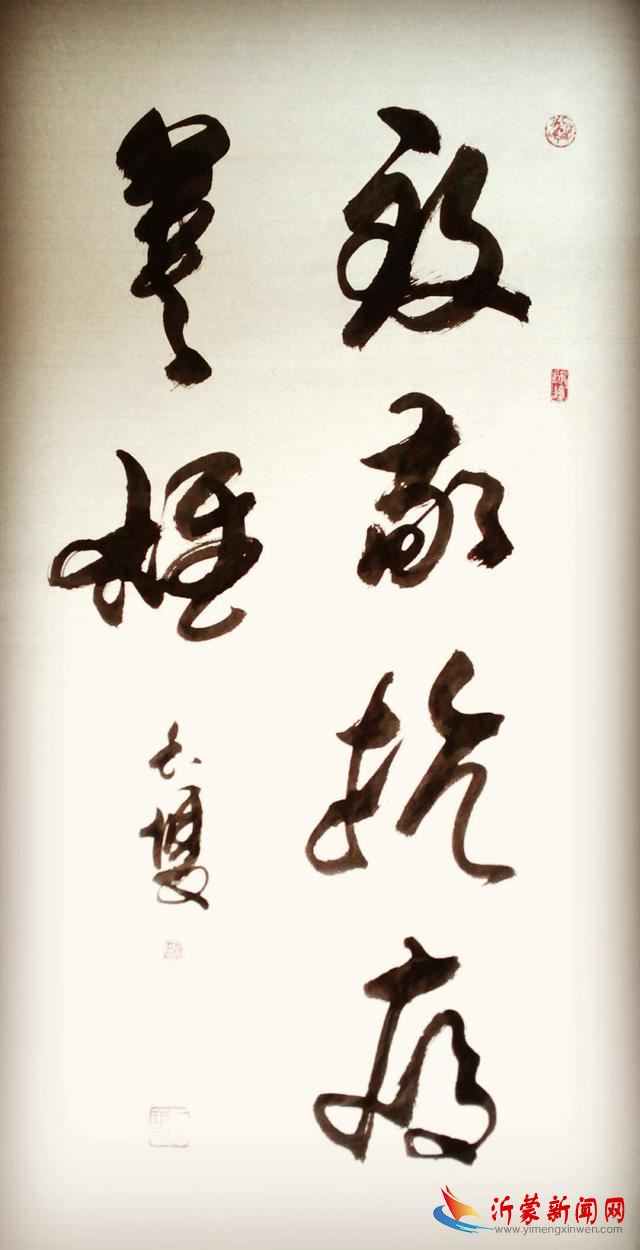 致敬抗疫
英雄
沂蒙新闻网
www.yimengxinwen.com